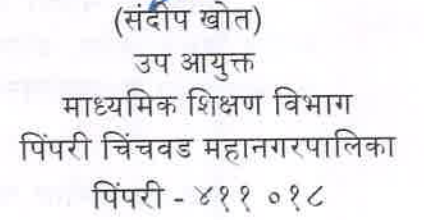 (संदीप खोत)
उप आयुक्त
माध्यमिक शिक्षण विभाग
पिंपरी चिंचवड महानगरपालिका
पिंपरी - ४११ ०१८